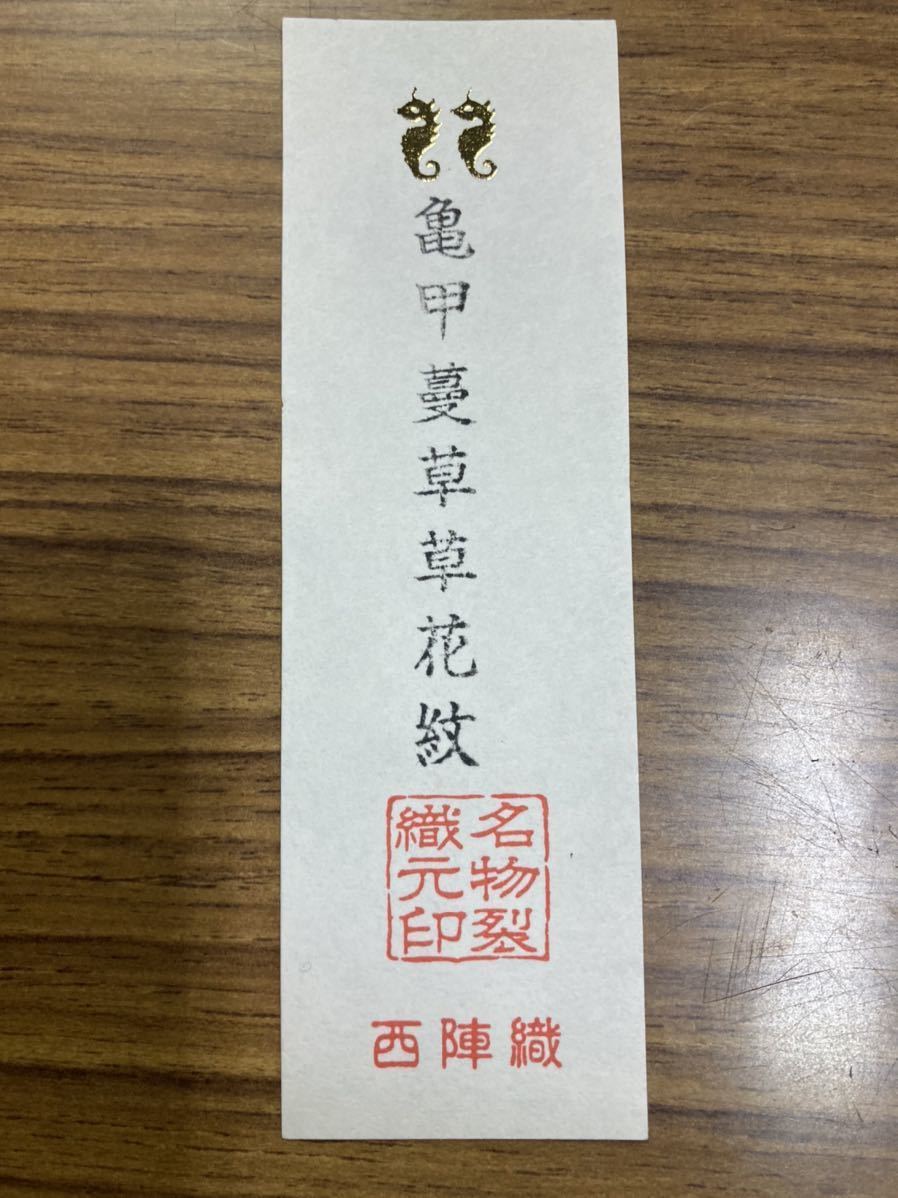 亀甲蔓草草花紋
名物裂
織元印
西陣織